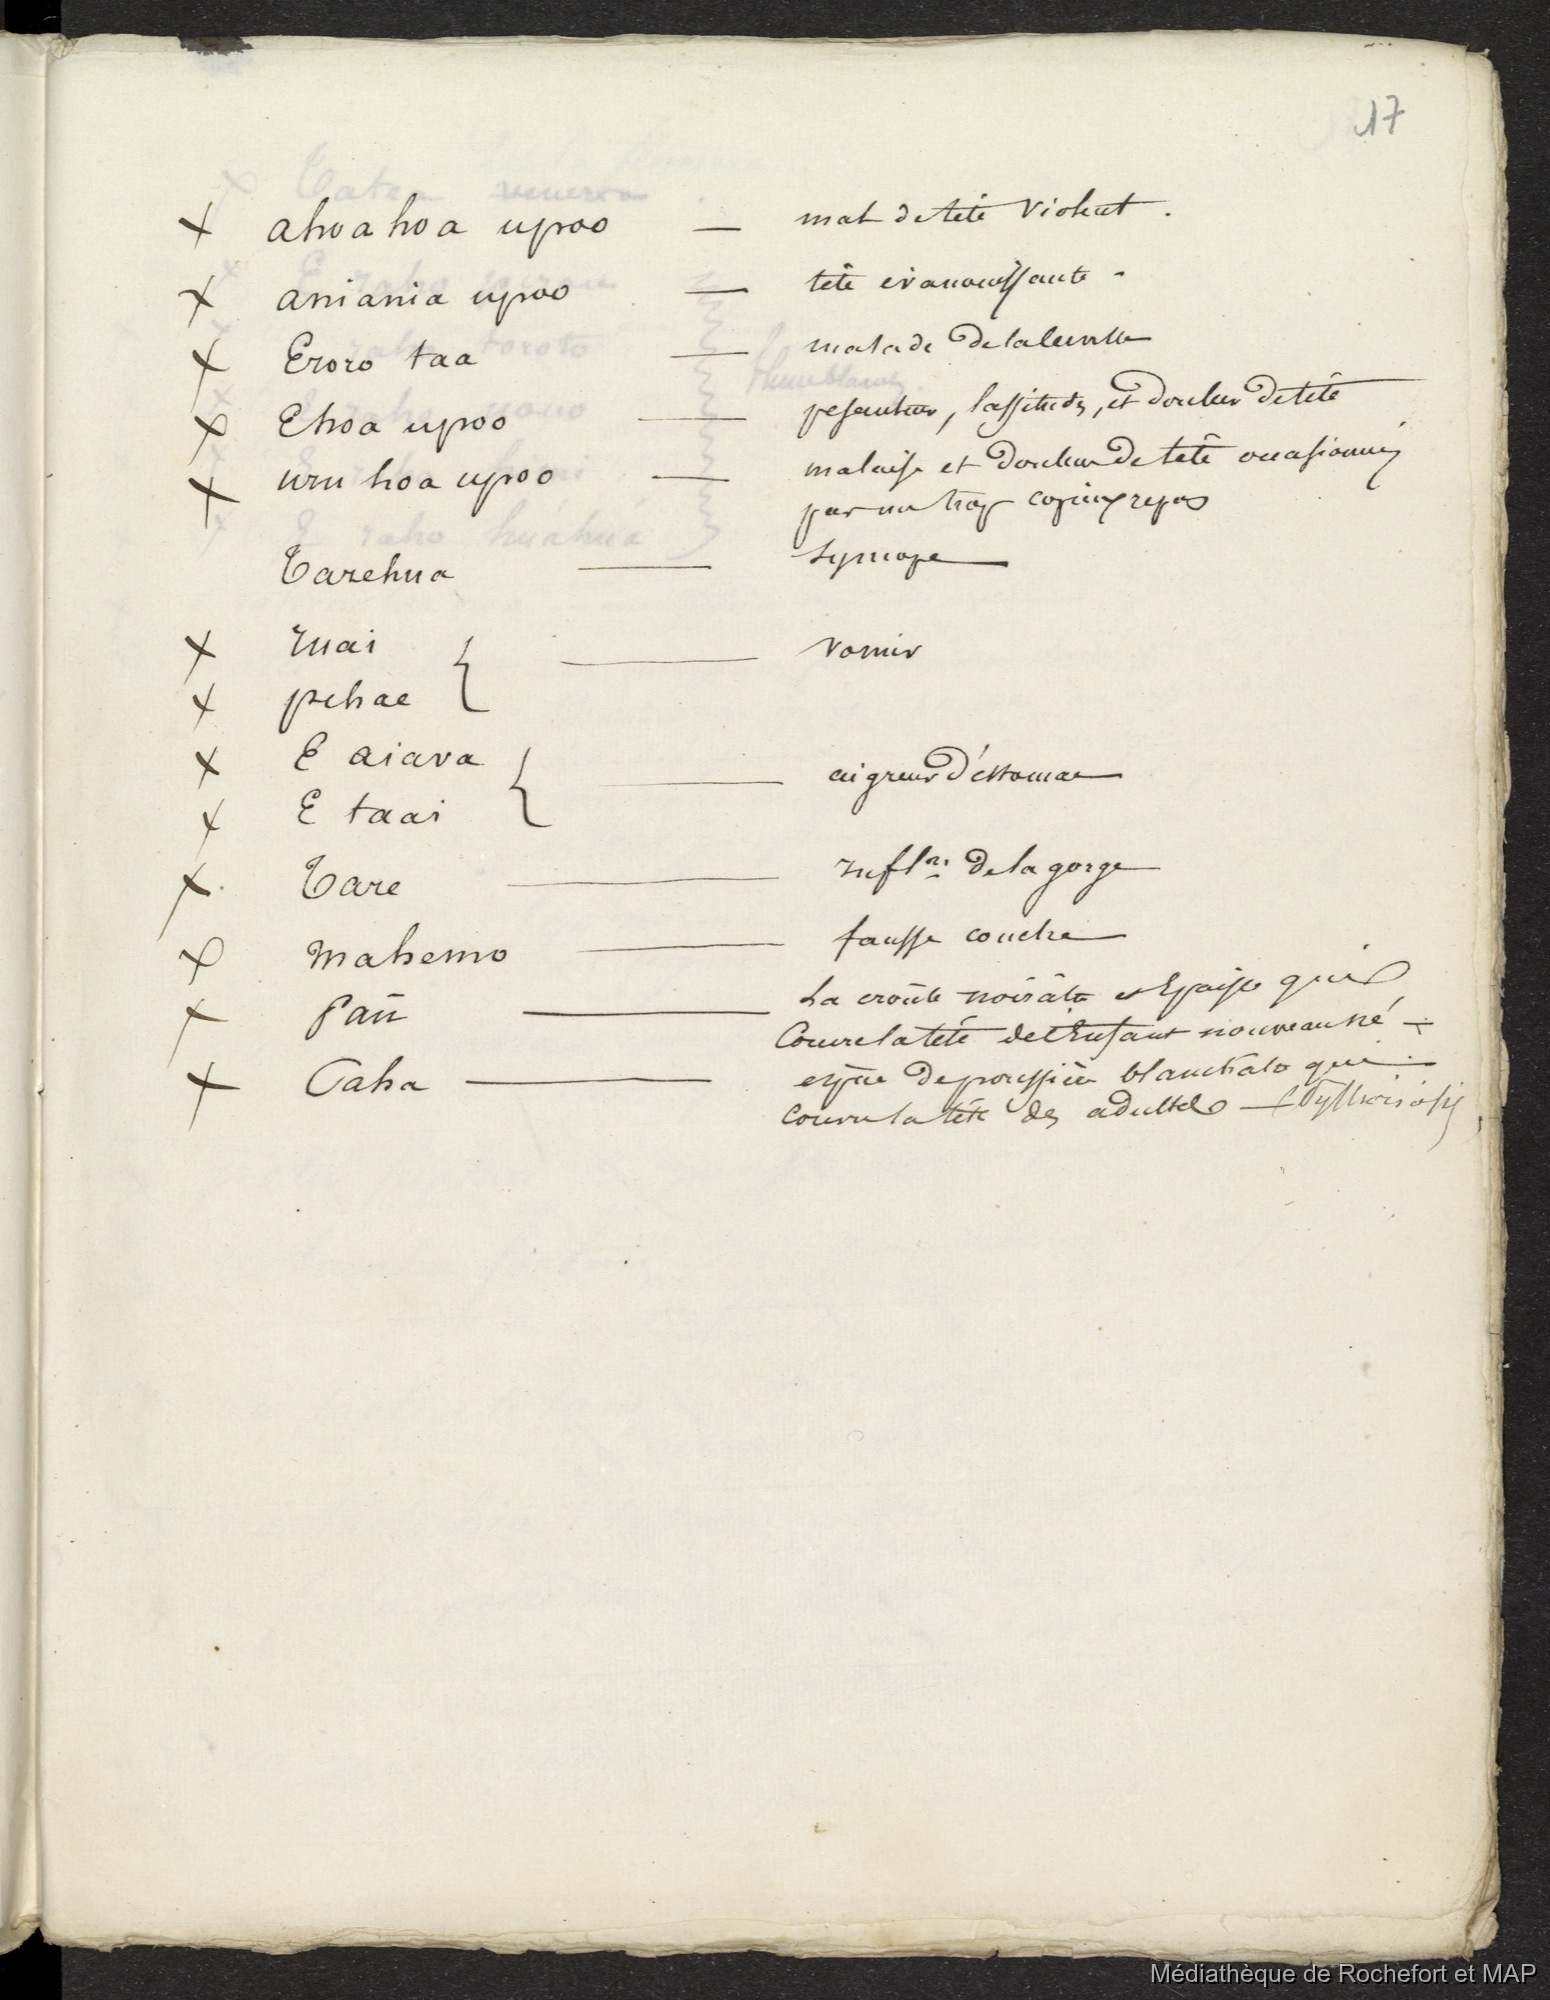 17
× ahoahoa upoo — mal de tête violent.
× aniania upoo — tête evanouissante -
× Eroro taa — malade de la
× Ehoa upoo — pesanteur, lassitude, et douleur de tête
× uru hoa upoo — malaise et douleur de tête occasionnés
par un trop copieux repas
Tarehua — Syncope
× ruai
× pehae } — vomir
× E aiava
× E taai } — aigreur d'éstomac
× Tare — de la gorge
× Mahemo — fausse couche
× Pañ — La croûte noirâtre et Epaisse qui
Couvre la tête de l'Enfant nouveau né —
× Taha — espèce de poussière blanchatre qui
couvre la tête des adultes —
Médiathèque de Rochefort et MAP